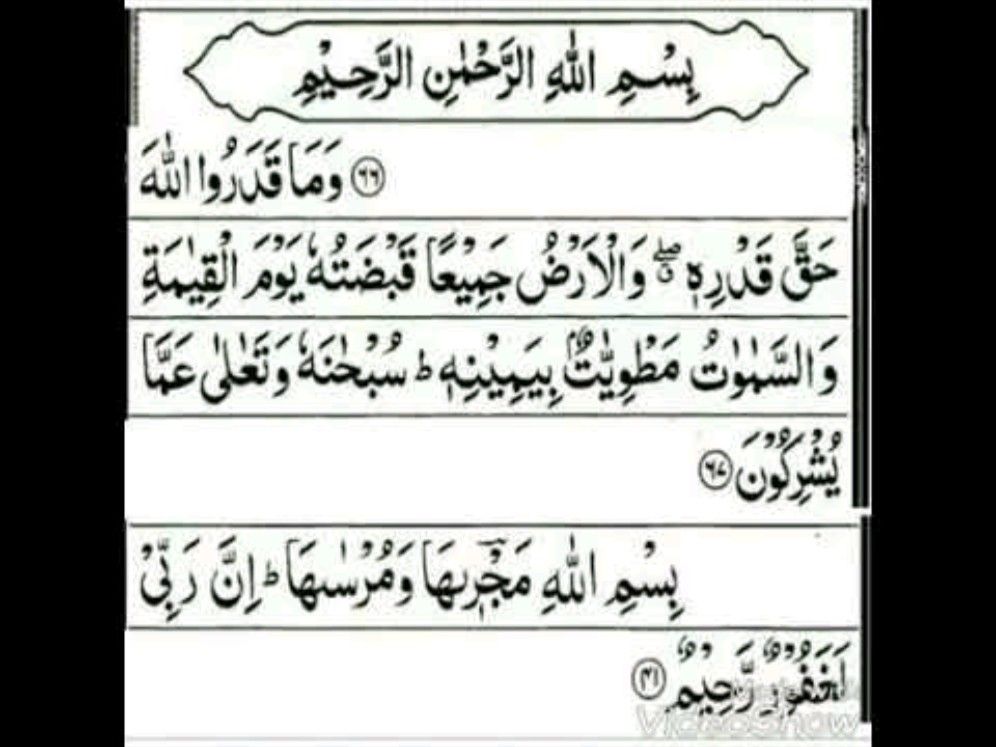 بِسْمِ اللّٰهِ الرَّحْمٰنِ الرَّحِيْمِ
﴿٦٦﴾ وَمَا قَدَرُوا اللّٰهَ
حَقَّ قَدْرِهٖ ۖ وَالْاَرْضُ جَمِيْعًا قَبْضَتُهٗ يَوْمَ الْقِيٰمَةِ
وَالسَّمٰوٰتُ مَطْوِيّٰتٌۢ بِيَمِيْنِهٖ ؕ سُبْحٰنَهٗ وَتَعٰلٰى عَمَّا
يُشْرِكُوْنَ ﴿٦٧﴾
بِسْمِ اللّٰهِ مَجْرٖىهَا وَمُرْسٰىهَا ؕ اِنَّ رَبِّىْ
لَغَفُوْرٌ رَّحِيْمٌ ﴿٤١﴾
VideoShow